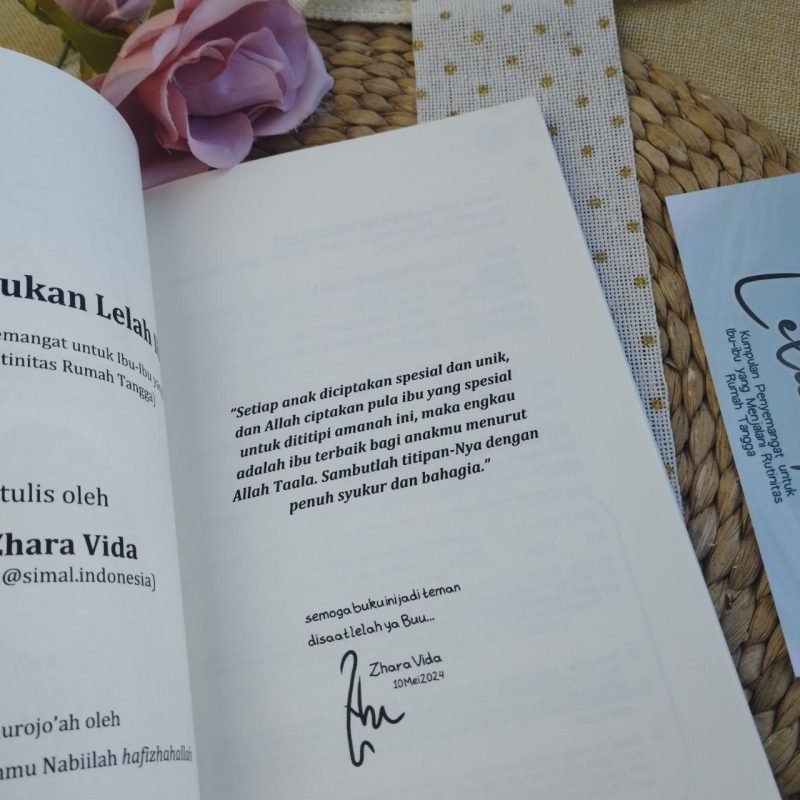 ukan Lelah
emangat untuk Ibu-Ibu
tinitas Rumah Tangga)
tulis oleh
Zhara Vida
@simal.indonesia)
urojo'ah oleh
mmu Nabiilah hafizhahallah
"Setiap anak diciptakan spesial dan unik,
dan Allah ciptakan pula ibu yang spesial
untuk dititipi amanah ini, maka engkau
adalah ibu terbaik bagi anakmu menurut
Allah Taala. Sambutlah titipan-Nya dengan
penuh syukur dan bahagia."
semoga buku ini jadi teman
disaat lelah ya Buu...
Zhara Vida
10 Mei 2024
Kumpulan Penyemangat untuk
Ibu-ibu yang Menjalani Rutinitas
Rumah Tangga